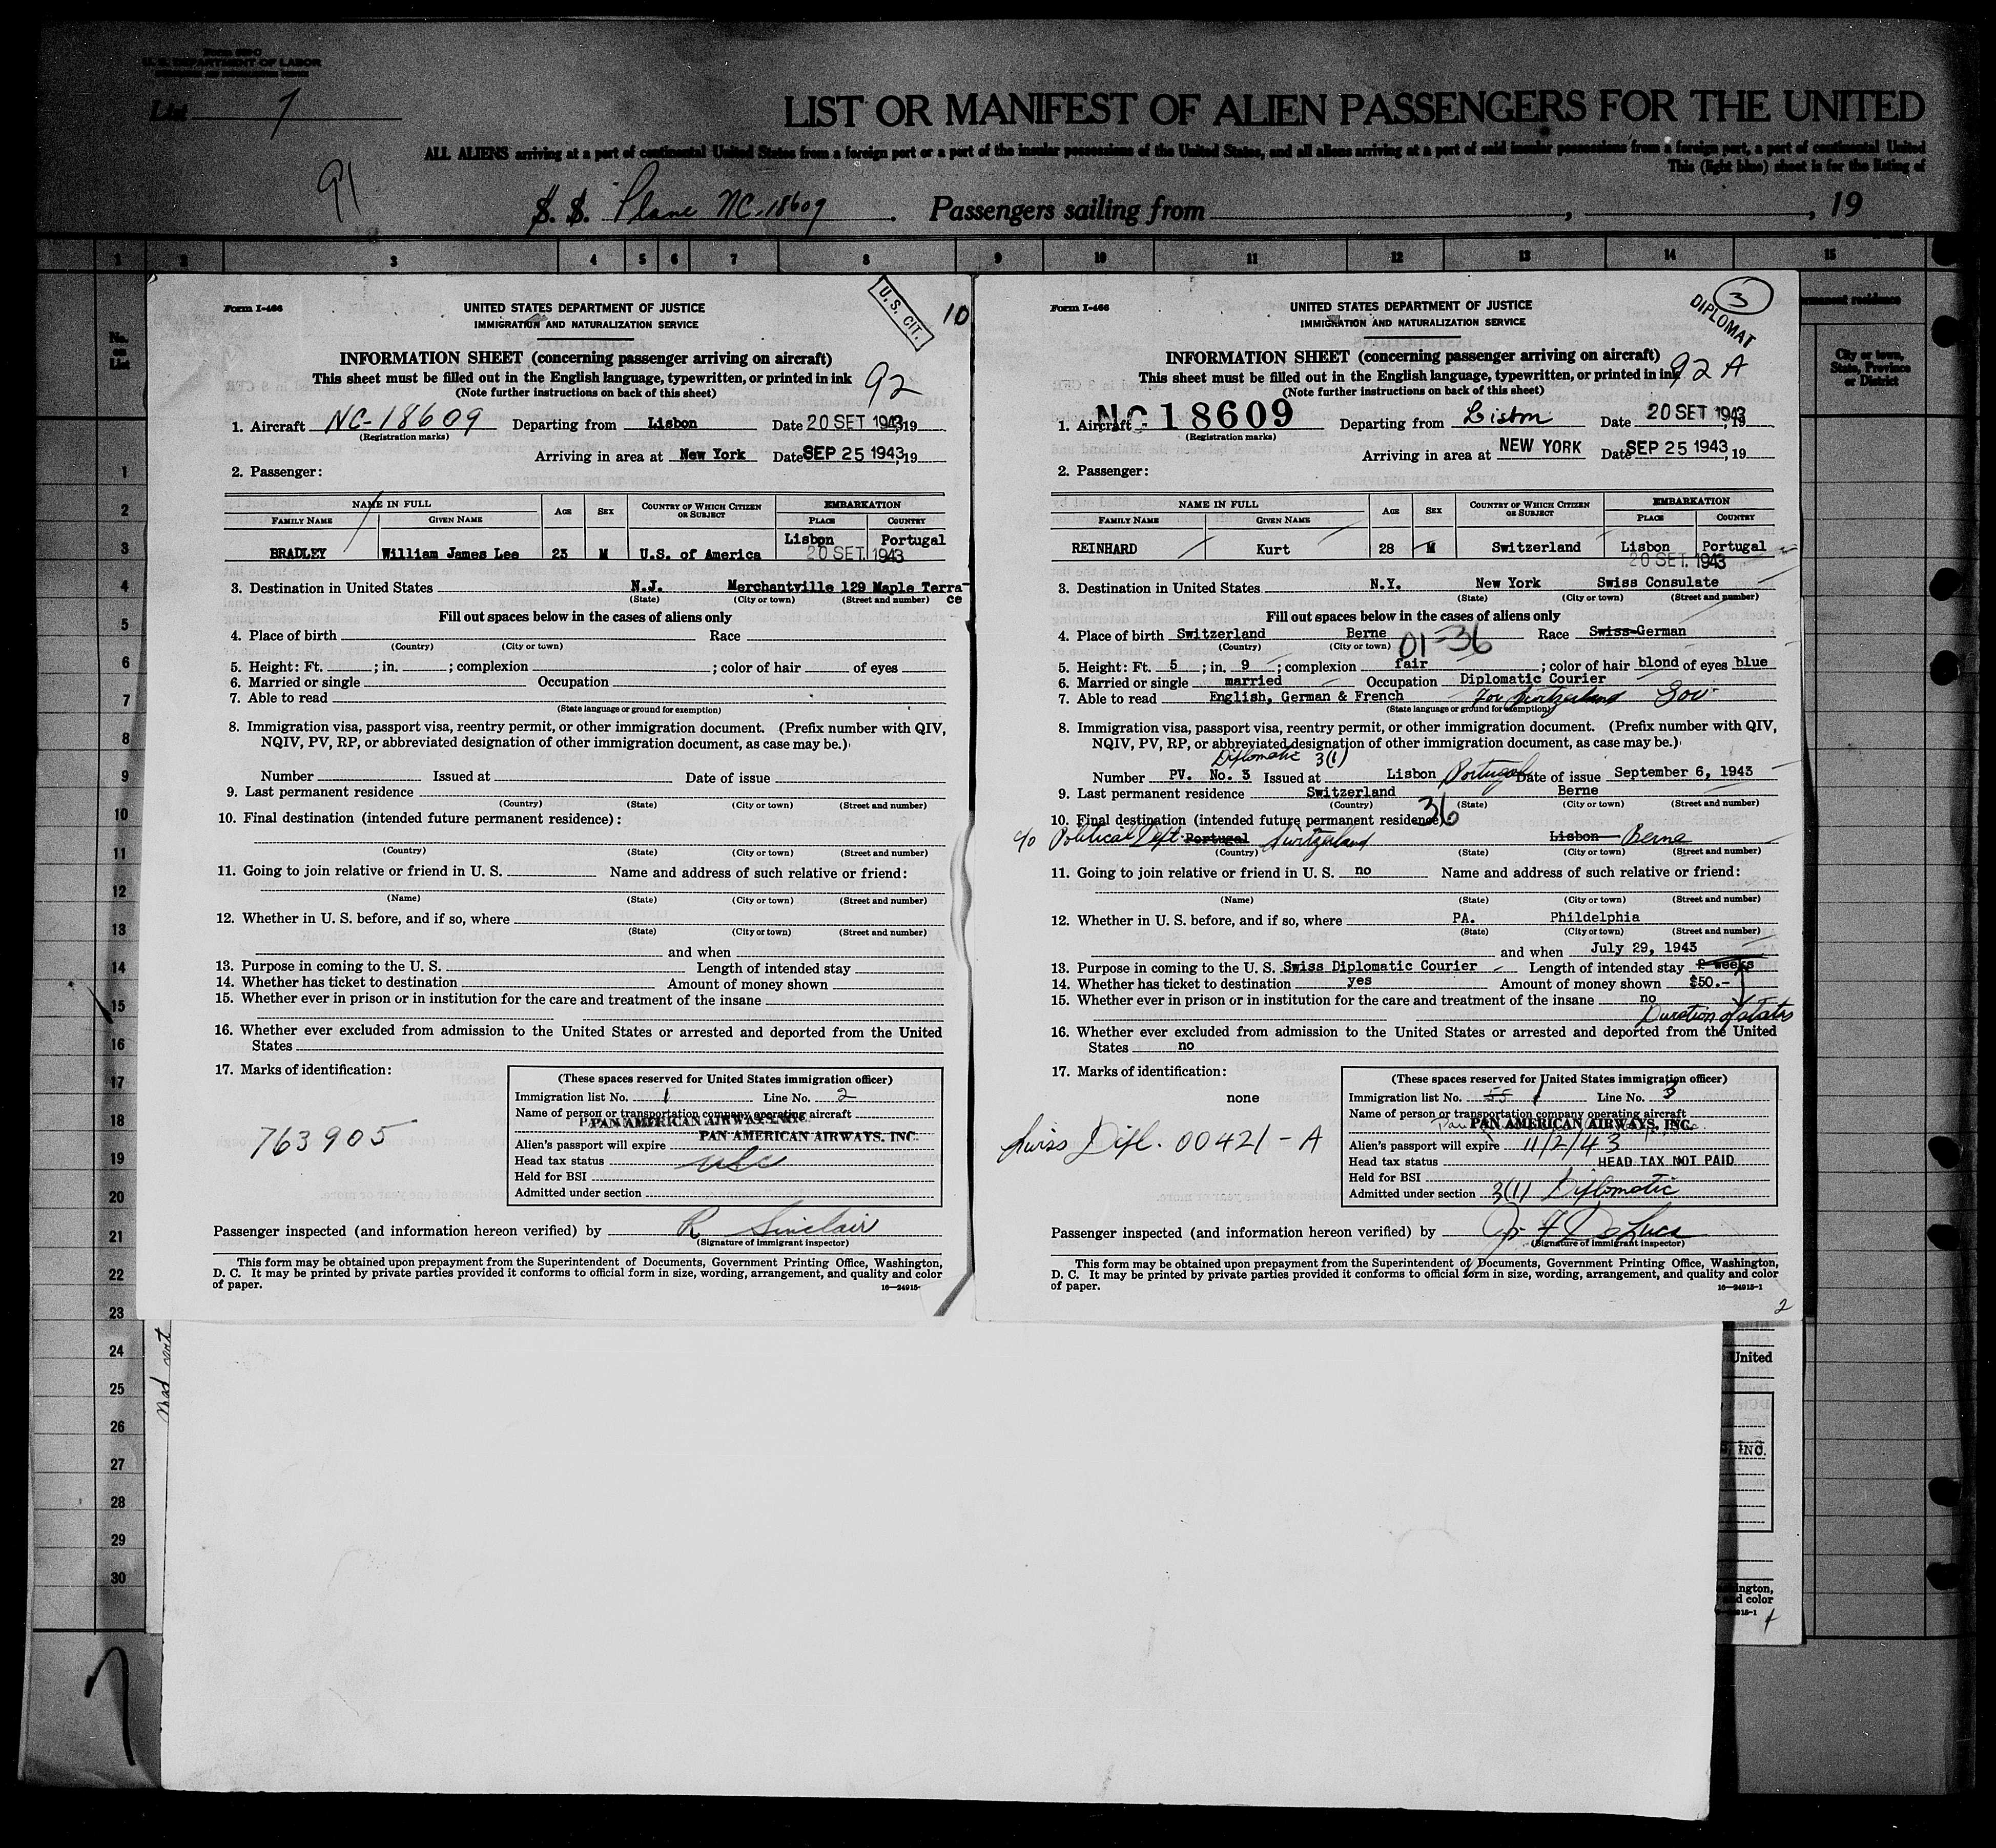 U. S. DEPARTMENT OF LABOR
List 7
LIST OR MANIFEST OF ALIEN PASSENGERS FOR THE UNITED
ALL ALIENS arriving at a port of continental United States from a foreign port or a port of the insular possessions of the United States, and all aliens arriving at a port of said insular possessions from a foreign port, a port of continental United
This (light blue) sheet is for the listing of
91
S. S. Plane NC-18609. Passengers sailing from , , 19
1 2 3 4 5 6 7 8 9 10 11 12 13 14 15
No. on List
1
2
3
4
5
6
7
8
9
10
11
12
13
14
15
16
17
18
19
20
21
22
23
24
25
26
27
28
29
30
permanent residence
City or town, State, Province or District
Form I-466
UNITED STATES DEPARTMENT OF JUSTICE
IMMIGRATION AND NATURALIZATION SERVICE
U. S. CIT.
10
INFORMATION SHEET (concerning passenger arriving on aircraft)
This sheet must be filled out in the English language, typewritten, or printed in ink
92
(Note further instructions on back of this sheet)
1. Aircraft NC-18609 Departing from Lisbon Date 20 SET 1943, 19
(Registration marks)
Arriving in area at New York Date SEP 25 1943, 19
2. Passenger:
NAME IN FULL AGE SEX COUNTRY OF WHICH CITIZEN OR SUBJECT EMBARKATION
FAMILY NAME GIVEN NAME PLACE COUNTRY
BRADLEY William James Lee 23 M U.S. of America Lisbon Portugal
20 SET. 1943
3. Destination in United States N.J. Merchantville 129 Maple Terra-
(State) (City or town) (Street and number) ce
Fill out spaces below in the cases of aliens only
4. Place of birth Race
(Country) (City or town)
5. Height: Ft. ; in. ; complexion ; color of hair of eyes
6. Married or single Occupation
7. Able to read
(State language or ground for exemption)
8. Immigration visa, passport visa, reentry permit, or other immigration document. (Prefix number with QIV,
NQIV, PV, RP, or abbreviated designation of other immigration document, as case may be.)
Number Issued at Date of issue
9. Last permanent residence
(Country) (State) (City or town) (Street and number)
10. Final destination (intended future permanent residence):
(Country) (State) (City or town) (Street and number)
11. Going to join relative or friend in U. S. Name and address of such relative or friend:
(Name) (State) (City or town) (Street and number)
12. Whether in U. S. before, and if so, where
(State) (City or town) (Street and number)
and when
13. Purpose in coming to the U. S. Length of intended stay
14. Whether has ticket to destination Amount of money shown
15. Whether ever in prison or in institution for the care and treatment of the insane
16. Whether ever excluded from admission to the United States or arrested and deported from the United
States
17. Marks of identification:
763905
(These spaces reserved for United States immigration officer)
Immigration list No. 1 Line No. 2
Name of person or transportation company operating aircraft
PAN AMERICAN AIRWAYS, INC.
PAN AMERICAN AIRWAYS, INC.
Alien's passport will expire
Head tax status USC
Held for BSI
Admitted under section
Passenger inspected (and information hereon verified) by R Sinclair
(Signature of immigrant inspector)
This form may be obtained upon prepayment from the Superintendent of Documents, Government Printing Office, Washington,
D. C. It may be printed by private parties provided it conforms to official form in size, wording, arrangement, and quality and color
of paper. 16—24915-
Form I-466
UNITED STATES DEPARTMENT OF JUSTICE
IMMIGRATION AND NATURALIZATION SERVICE
3
DIPLOMAT
INFORMATION SHEET (concerning passenger arriving on aircraft)
This sheet must be filled out in the English language, typewritten, or printed in ink
92 A
(Note further instructions on back of this sheet)
1. Aircraft NC-18609 Departing from Lisbon Date 20 SET 1943, 19
(Registration marks)
Arriving in area at NEW YORK Date SEP 25 1943, 19
2. Passenger:
NAME IN FULL AGE SEX COUNTRY OF WHICH CITIZEN OR SUBJECT EMBARKATION
FAMILY NAME GIVEN NAME PLACE COUNTRY
REINHARD Kurt 28 M Switzerland Lisbon Portugal
20 SET. 1943
3. Destination in United States N.Y. New York Swiss Consulate
(State) (City or town) (Street and number)
Fill out spaces below in the cases of aliens only
4. Place of birth Switzerland Berne Race Swiss-German
(Country) (City or town) 01-36
5. Height: Ft. 5 ; in. 9 ; complexion fair ; color of hair blond of eyes blue
6. Married or single married Occupation Diplomatic Courier
7. Able to read English, German & French for Switzerland Gov.
(State language or ground for exemption)
8. Immigration visa, passport visa, reentry permit, or other immigration document. (Prefix number with QIV,
NQIV, PV, RP, or abbreviated designation of other immigration document, as case may be.)
Diplomatic 3(1)
Number PV. No. 3 Issued at Lisbon Portugal Date of issue September 6, 1943
9. Last permanent residence Switzerland Berne
(Country) (State) (City or town) (Street and number)
36
10. Final destination (intended future permanent residence)
c/o Political Dept. Portugal Switzerland Lisbon Berne
(Country) (State) (City or town) (Street and number)
11. Going to join relative or friend in U. S. no Name and address of such relative or friend:
(Name) (State) (City or town) (Street and number)
12. Whether in U. S. before, and if so, where PA. Phildelphia
(State) (City or town) (Street and number)
and when July 29, 1943
13. Purpose in coming to the U. S. Swiss Diplomatic Courier Length of intended stay 2 weeks
14. Whether has ticket to destination yes Amount of money shown $50.-
15. Whether ever in prison or in institution for the care and treatment of the insane no
Duration of status
16. Whether ever excluded from admission to the United States or arrested and deported from the United
States no
17. Marks of identification:
none
Swiss Dipl. 00421-A
(These spaces reserved for United States immigration officer)
Immigration list No. 55 1 Line No. 3
Name of person or transportation company operating aircraft
PAN AMERICAN AIRWAYS, INC.
Alien's passport will expire 11/2/43
Head tax status HEAD TAX NOT PAID
Held for BSI
Admitted under section 3(1) Diplomatic
Passenger inspected (and information hereon verified) by
(Signature of immigrant inspector)
This form may be obtained upon prepayment from the Superintendent of Documents, Government Printing Office, Washington,
D. C. It may be printed by private parties provided it conforms to official form in size, wording, arrangement, and quality and color
of paper. 16—24915-1
2
United
INC.
ington,
d color
915-1
4